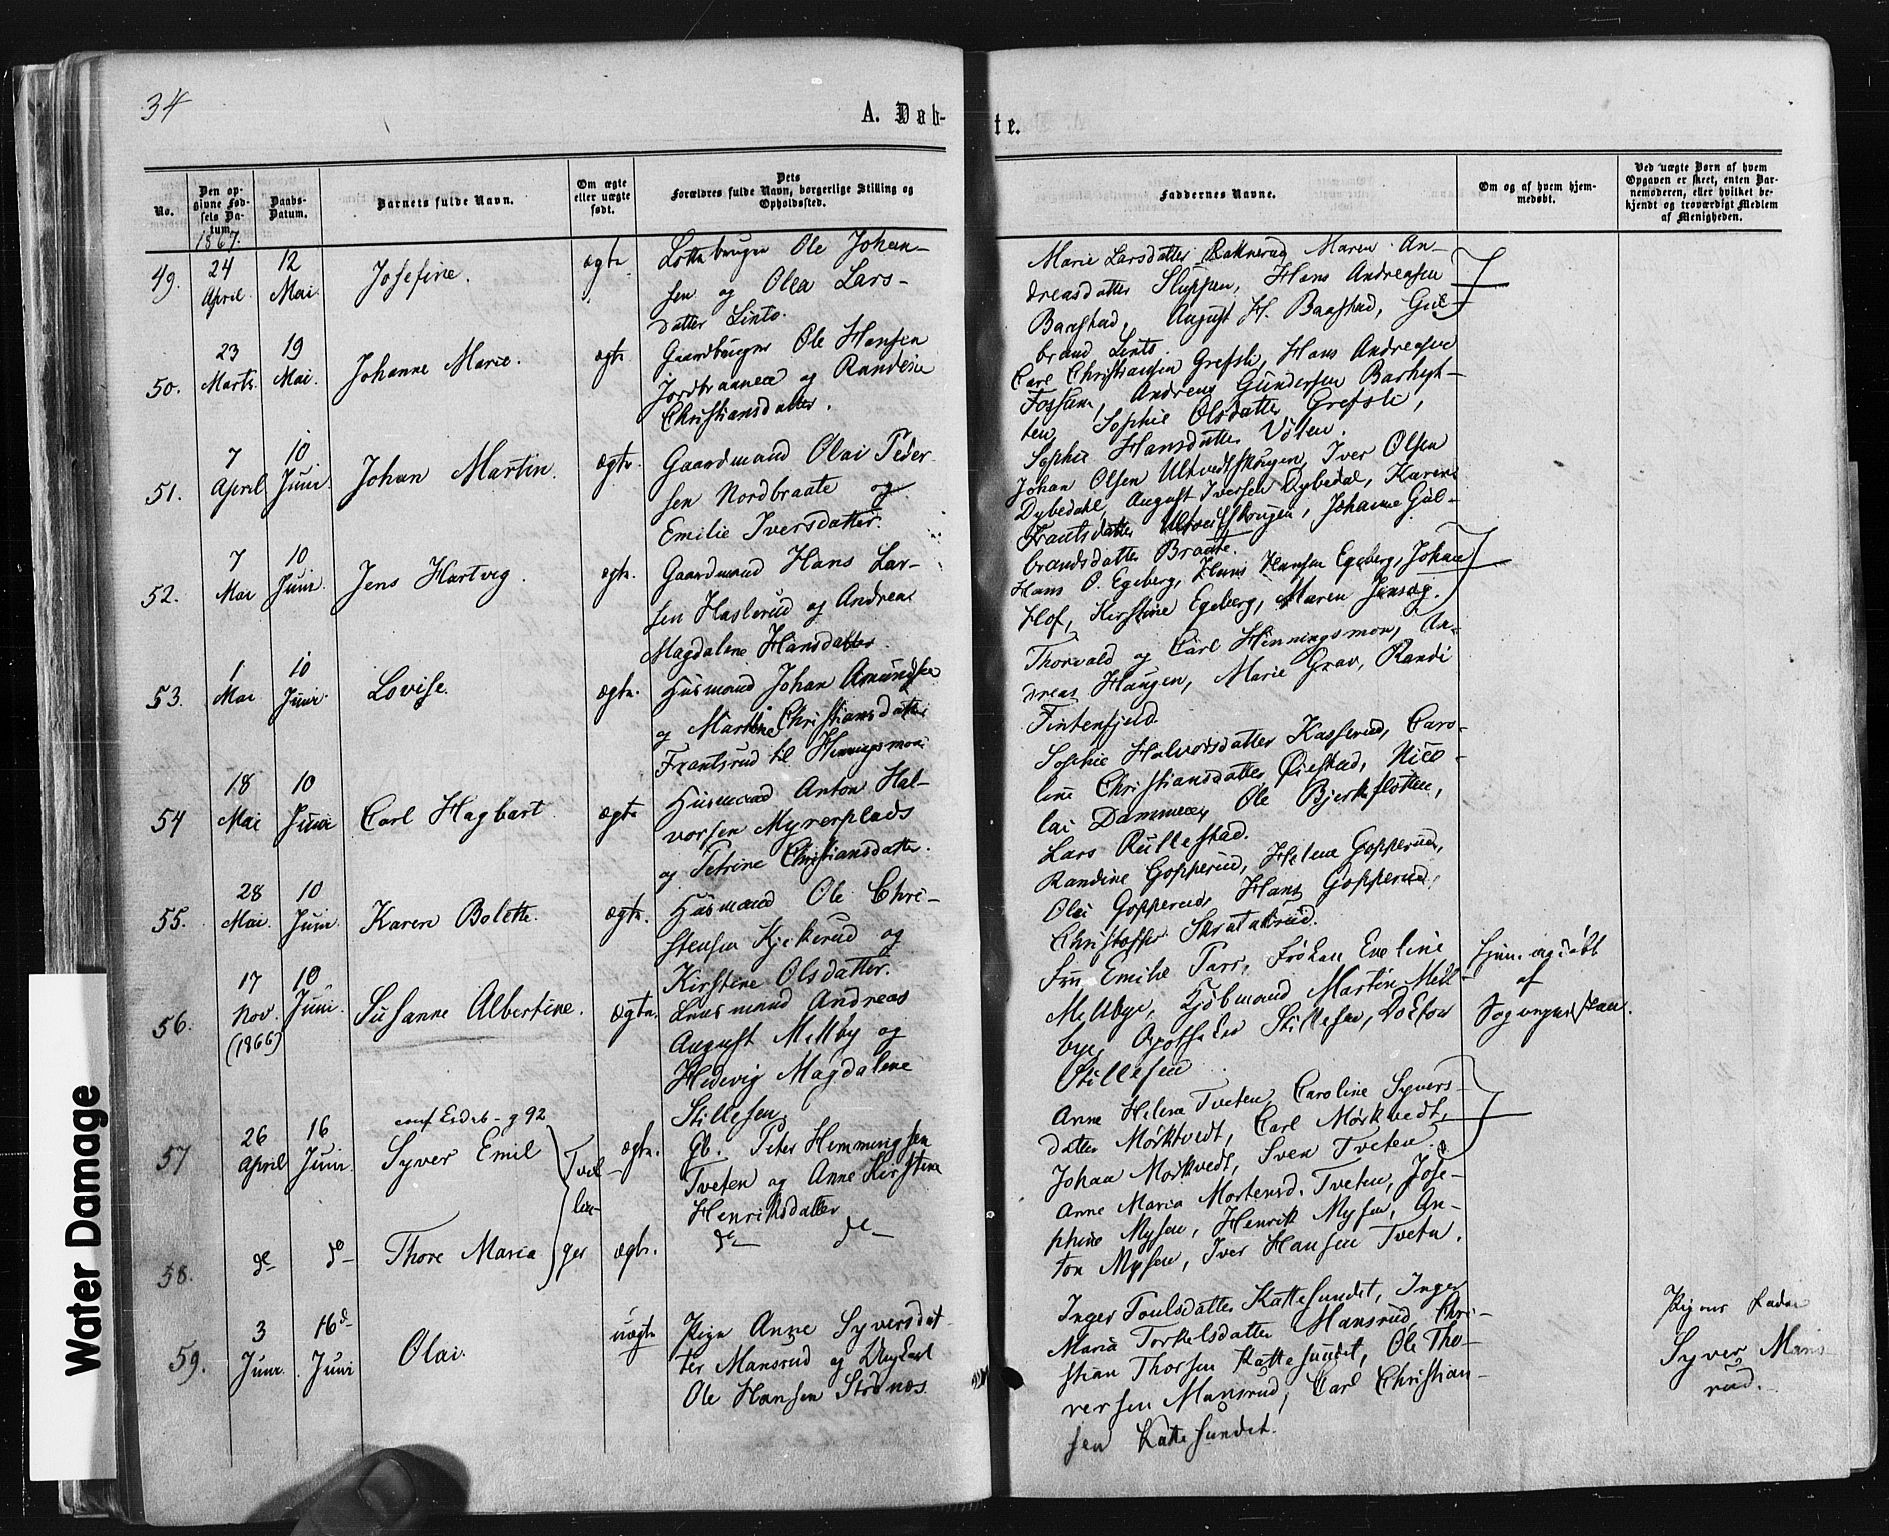 34
A. Døb-
te.
No.
Den op-
givne Fød-
sels Da-
tum.
1867.
Daabs-
Datum.
Barnets fulde Navn.
Om ægte
eller uægte
født.
Dets
Forældres fulde Navn, borgerlige Stilling og
Opholdssted.
Faddernes Navne.
Om og af hvem hjem-
medøbt.
Ved uægte Børn af hvem
Opgaven er skeet, enten Bar-
nemoderen, eller hvilket be-
kjendt og troværdigt Medlem
af Menigheden.
49.
24
April
12
Mai
Josefine.
ægte
Ole Johan-
sen og Olea Lars-
datter Linto.
Marie Larsdatter Raknerud, Maren An-
dreasdatter Sluppen, Hans Andreasen
Baastad, August H. Baastad, Gul-
brand Linto.
50.
23
Marts
19
Mai.
Johanne Marie.
ægte
Gaardbruger Ole Hansen
Jordbrannen og Randine
Christiansdatter.
Carl Christiansen Grefsli, Hans Andreasen
Fossum, Andreas Gundersen Barhegt-
ten, Sophie Olsdatter Grefsli,
Sophie Hansdatter
51.
7
April
10
Juni
Johan Martin.
ægte.
Gaardmand Olai Peder-
sen Nordbraate og
Emilie Iversdatter.
Johan Olsen Ultvedtskougen, Iver Olsen
Dybedahl, August Iversen Dybedal, Karen
Frantsdatter Ultvedtskougen, Johanne Gul-
brandsdatter Braate.
52.
7
Mai
10
Juni.
Jens Hartvig.
ægte.
Gaardmand Hans Lar-
sen Haslerud og Andrea
Magdalene Hansdatter.
Hans O. Egeberg, Hans Hansen Egeberg, Johan
Hof, Kirstine Egeberg, Maren Jensæg.
53.
1
Mai
10
Juni
Lovise.
ægte.
Husmand Johan Amundsen
og Martine Christiansdatter
Frantsrud til Henningsmoen
Thorvald og Carl Henningsmon, An-
dreas Haugen, Marie Grav, Randi
Fintenfjeld.
54
18
Mai
10
Juni
Carl Hagbart.
ægte
Husmand Anton Hal-
vorsen Myrerplads
og Petrine Christiansdatter.
Sophie Halvorsdatter Kasserud, Caro-
line Christiansdatter Øiestad, Nico-
lai Dammen, Ole Bjerkesletten,
Lars Rullestad.
55.
28
Mai.
10
Juni.
Karen Bolette.
ægte.
Husmand Ole Chri-
stensen Kjekerud og
Kirstine Olsdatter.
Randine Gopperud, Helene Gopperud,
Olai Gopperud, Hans Gopperud,
Christoffer Skratakrud.
56.
17
Nov.
(1866)
10
Juni
Susanne Albertine.
ægte.
Andreas
August Mellby og
Hedevig Magdalene
Stillesen.
Fru Emilie Parr, Frøken Eveline
Mellbye, Kjøbmand Martin Mell-
bye, Apotheker Stillesen, Doktor
Stillesen
Hjemmedøbt
af
Sognepræsten.
57
26
April
16
Juni.
conf Eidsb- g 92
Syver Emil
Tvil-
lin-
ger
ægte.
Gb. Peter Hemmingsen
Tveten og Anne Kirstine
Henriksdatter
Anne Helene Tveten, Caroline Syvers-
datter Mørkvedt, Carl Mørkvedt,
Johan Mørkvedt, Sven Tveten.
58.
do
do
Thore Maria
ægte.
do do
Anne Maria Mortensd. Tveten, Jose-
phine Mysen, Henrik Mysen, An-
ton Mysen, Iver Hansen Tveten.
59.
3
Juni
16de
Juni
Olai.
uægte
Pige Anne Syversdat-
ter Mansrud og Ungkarl
Ole Hansen Strønæs
Inger Poulsdatter Kattesundet, Inger
Maria Torkelsdatter Mansrud, Chri-
stian Thorsen Kattesundet, Ole Tho-
rersen Mansrud, Carl Christian-
sen Kattesundet.
Pigens Fader
Syver Mans-
rud.
Water Damage